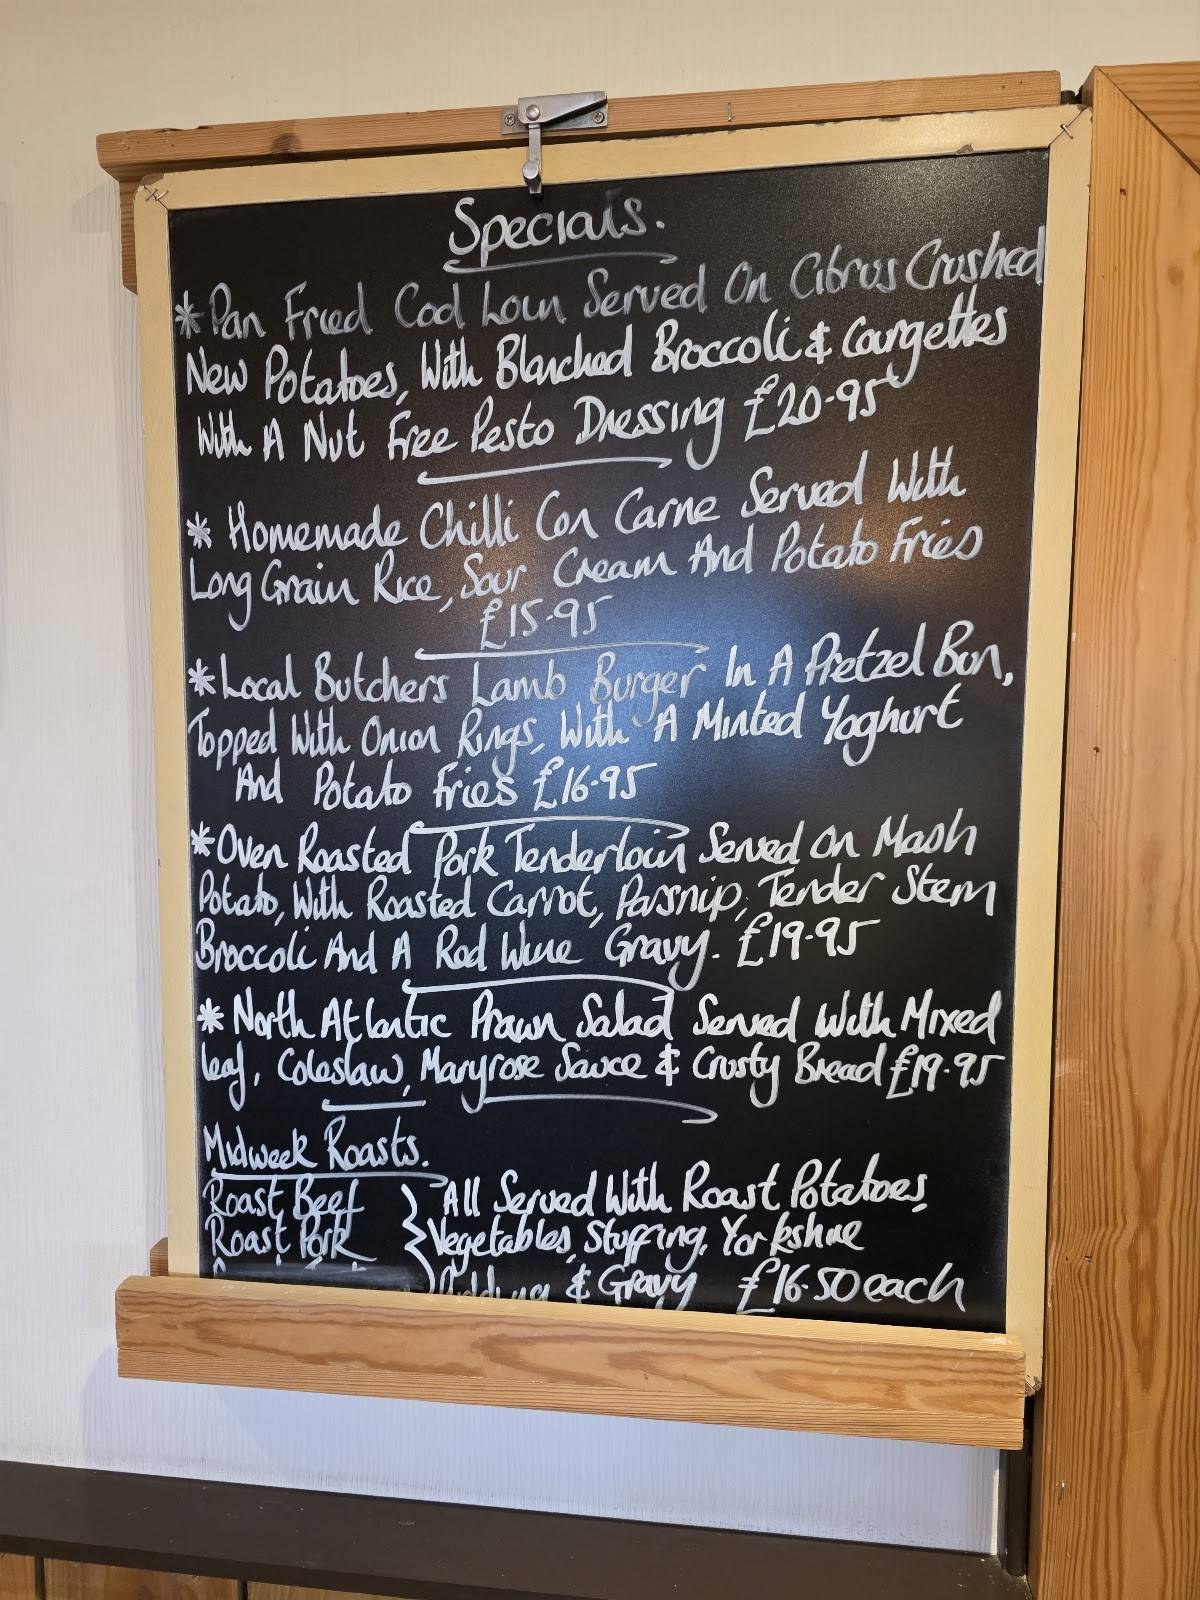 Specials.
*Pan Fried Cod Loin Served On Citrus Crushed
New Potatoes, With Blanched Broccoli & Courgettes
With A Nut Free Pesto Dressing £20-95
* Homemade Chilli Con Carne Served With
Long Grain Rice, Sour Cream And Potato Fries
£15-95
*Local Butchers Lamb Burger In A Pretzel Bun,
Topped With Onion Rings, With A Minted Yoghurt
And Potato Fries £16-95
*Oven Roasted Pork Tenderloin Served On Mash
Potato, With Roasted Carrot, Parsnip, Tender Stem
Broccoli And A Red Wine Gravy. £19-95
*North Atlantic Prawn Salad Served With Mixed
leaf, Coleslaw, Maryrose Sauce & Crusty Bread £19-95
Midweek Roasts.
Roast Beef
Roast Pork
All Served With Roast Potatoes,
Vegetables, Stuffing, Yorkshire
Pudding & Gravy £16-50 each